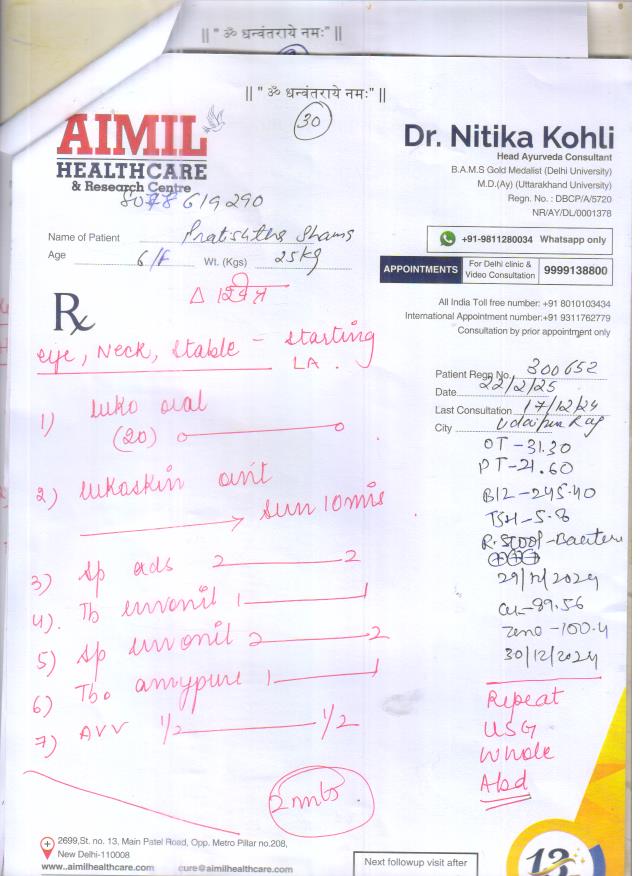 || " ॐ धन्वंतराये नमः" ||
|| " ॐ धन्वंतराये नमः" ||
30
AIMIL
HEALTHCARE
& Research Centre
8078619290
Dr. Nitika Kohli
Head Ayurveda Consultant
B.A.M.S Gold Medalist (Delhi University)
M.D.(Ay) (Uttarakhand University)
Regn. No. : DBCP/A/5720
NR/AY/DL/0001378
+91-9811280034 Whatsapp only
APPOINTMENTS For Delhi clinic & Video Consultation 9999138800
All India Toll free number: +91 8010103434
International Appointment number:+91 9311762779
Consultation by prior appointment only
Name of Patient Pratishtha
Age 6/F Wt. (Kgs) 25kg
Δ श्वित्र
Rx
eye, Neck, stable - starting
LA.
Patient Regn No. 300652
Date 22/2/25
Last Consultation 17/12/24
City Udaipur Raj
1) luko oral
(20) 0 0
2) lukoskin oint
sun 10 mis
3) Sp ads 2 2
4). Tb 1 1
5) Sp 2 2
6) Tb. amypure 1 1
7) AVV 1/2 1/2
2 mts
OT-31.30
PT-21.60
B12-245.40
TSH-5.8
R. Stool-Bacteria
+++
29/12/2024
cu-89.56
Zinc-100.4
30/12/2024
Repeat
USG
Whole
Abd
2699,St. no. 13, Main Patel Road, Opp. Metro Pillar no.208,
New Delhi-110008
www..aimilhealthcare.com cure@aimilhealthcare.com
Next followup visit after
12